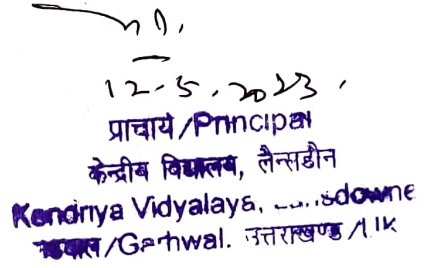 12.5.2023.
प्राचार्य/Principal
केन्द्रीय विद्यालय, लैन्सडौन
Kendriya Vidyalaya, ...sdowne
/Garhwal. उत्तराखण्ड /U.K